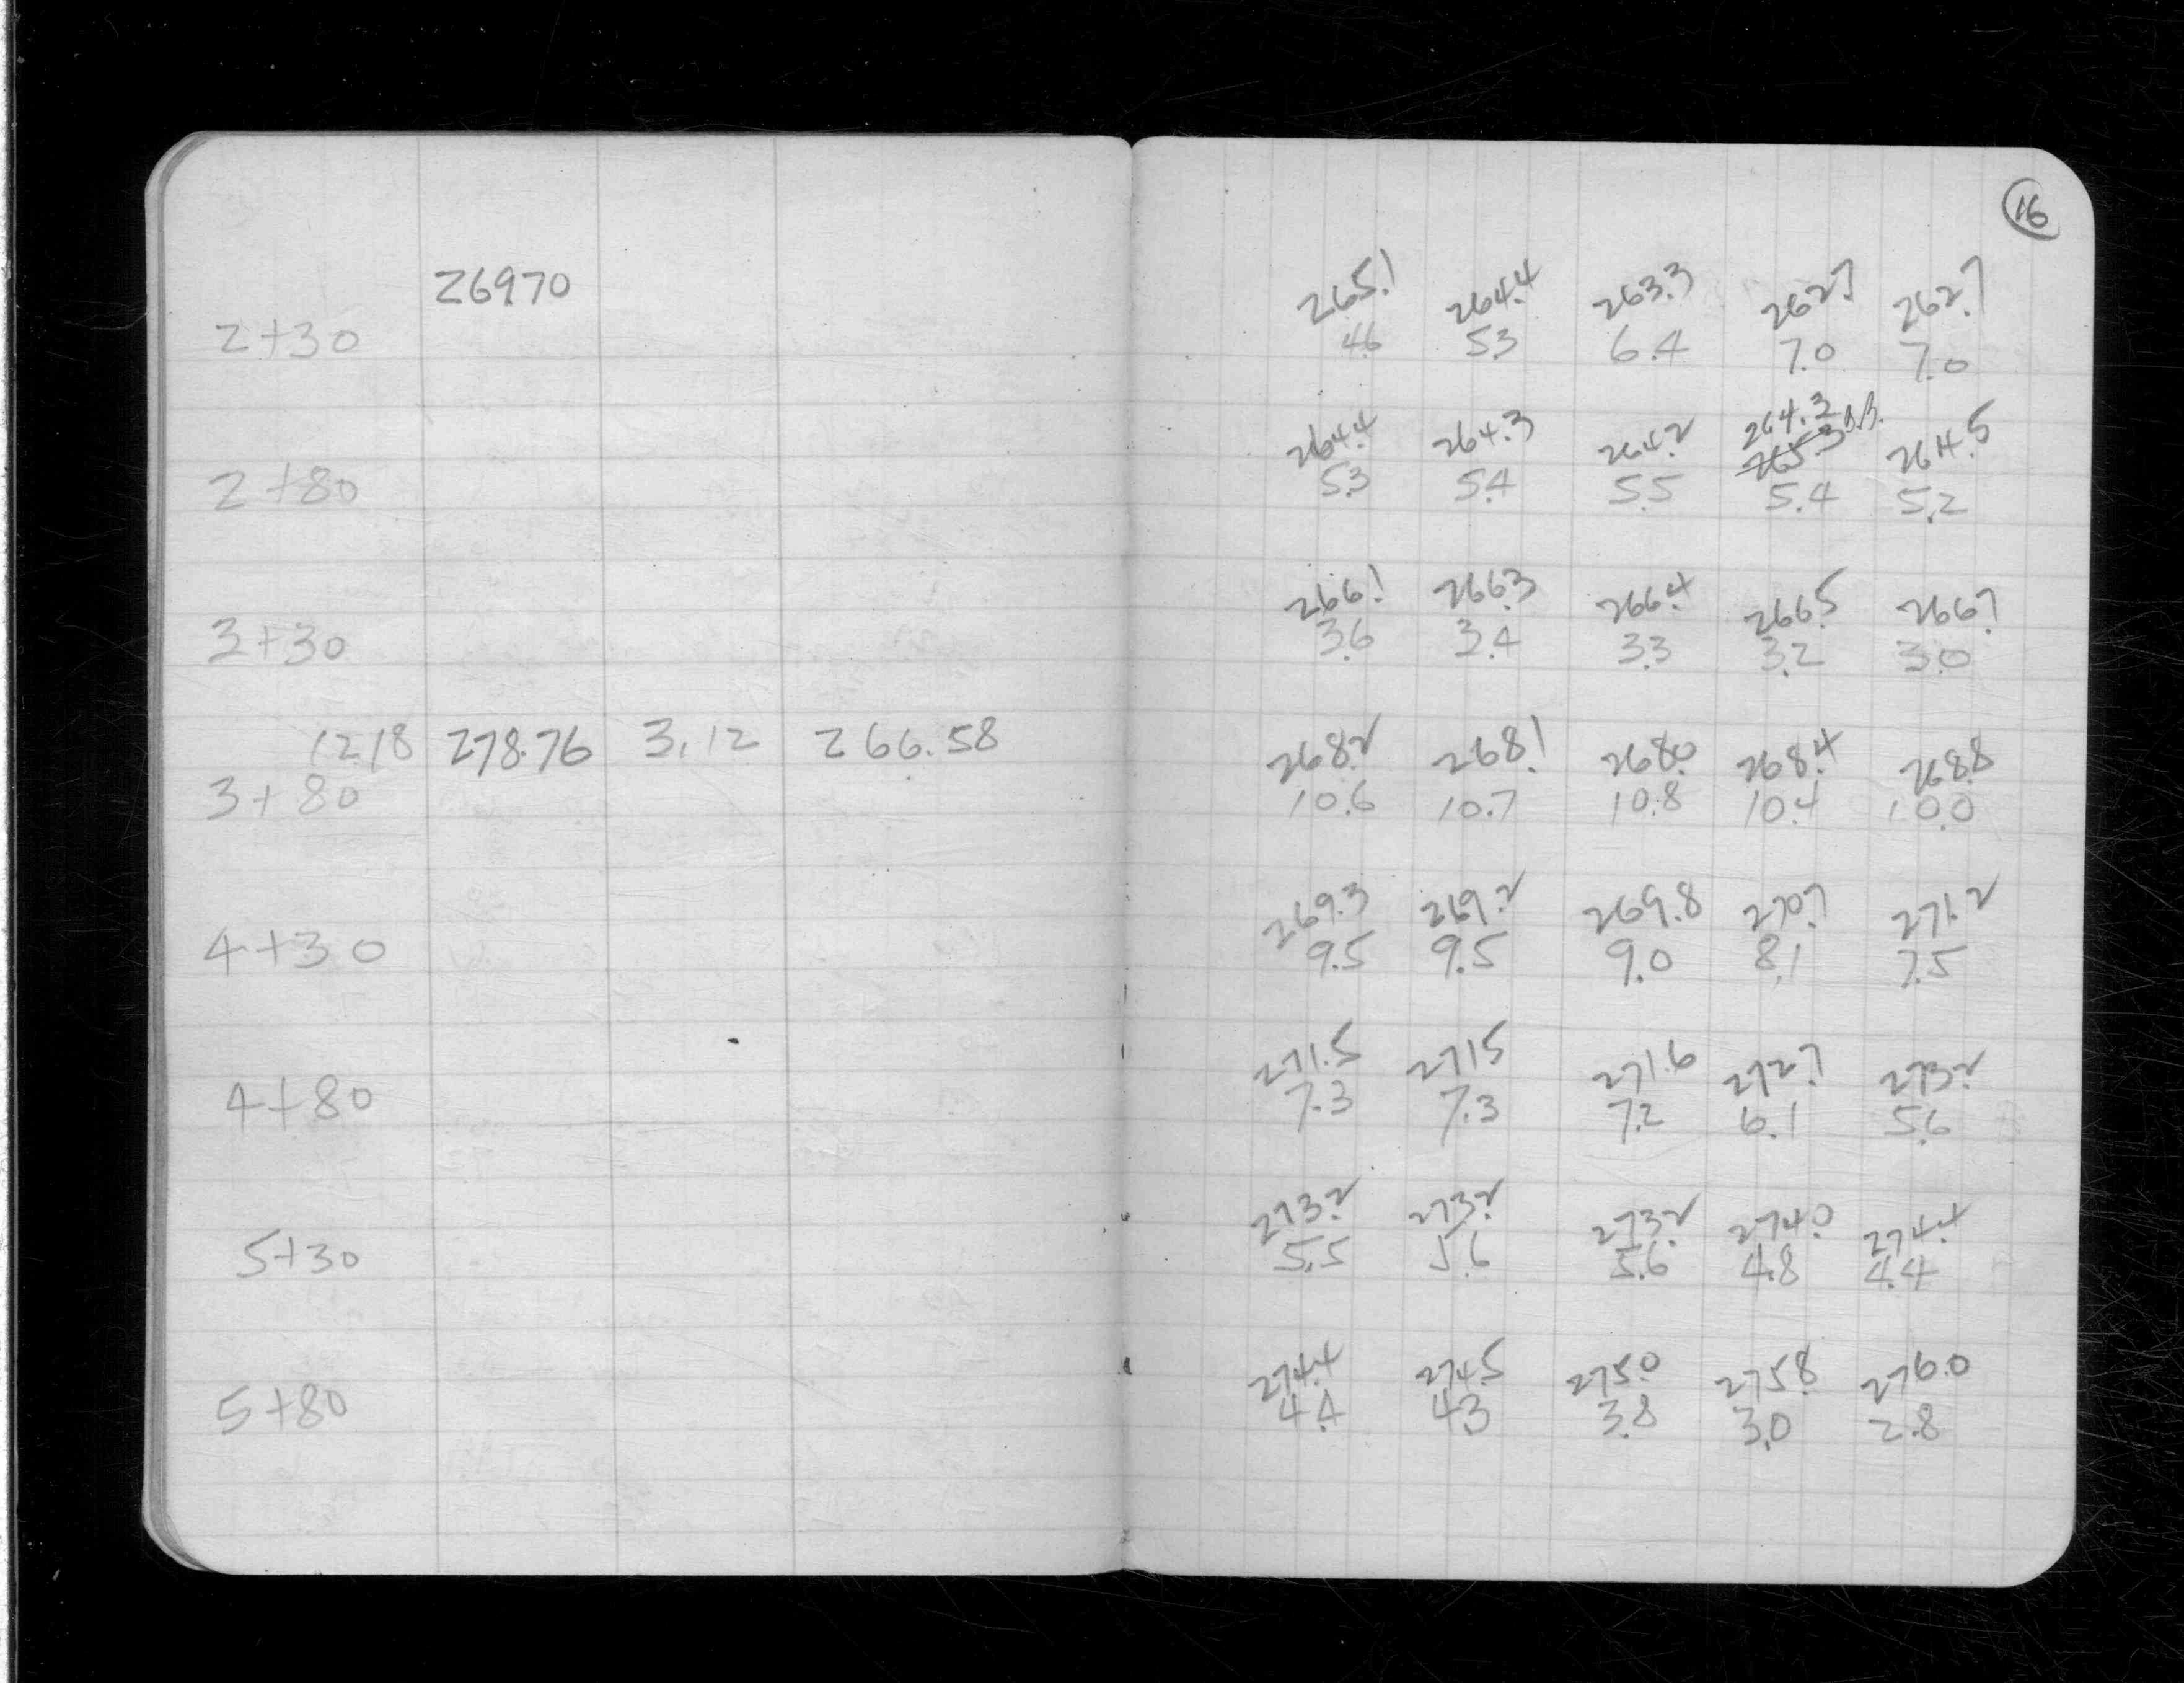 16
269.70
265.1 264.4 263.3 262.7 262.7
2+30 4.6 5.3 6.4 7.0 7.0
264.3
264.4 264.3 264.2 265.3 264.5
2+80 5.3 5.4 5.5 5.4 5.2
266.1 266.3 266.4 266.5 266.7
3+30 3.6 3.4 3.3 3.2 3.0
12.18 278.76 3.12 266.58 268.2 268.1 268.0 268.4 268.8
3+80 10.6 10.7 10.8 10.4 10.0
269.3 269.2 269.8 270.7 271.2
4+30 9.5 9.5 9.0 8.1 7.5
271.5 271.5 271.6 272.7 273.2
4+80 7.3 7.3 7.2 6.1 5.6
273.2 273.2 273.2 274.0 274.4
5+30 5.5 5.6 5.6 4.8 4.4
274.4 274.5 275.0 275.8 276.0
5+80 4.4 4.3 3.8 3.0 2.8